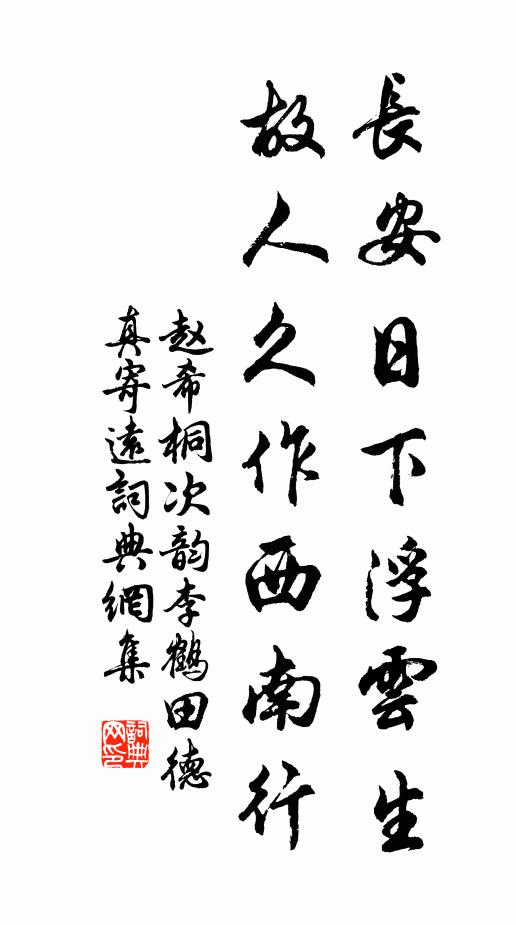 長安日下浮雲生
故人久作西南行
赵希桐次韵李鶴田德
真寄遠詞典網集
詞典網印